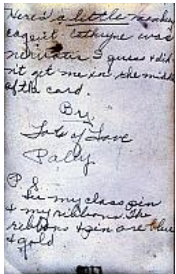 Here's a little monkey
Cathryne was
nervous I guess & did
n't get me in the middle
of the card.
By.
Lots of Love
Polly.
P.S
See my class pin
& my ribbons. The
ribbons & pin are blue
& gold